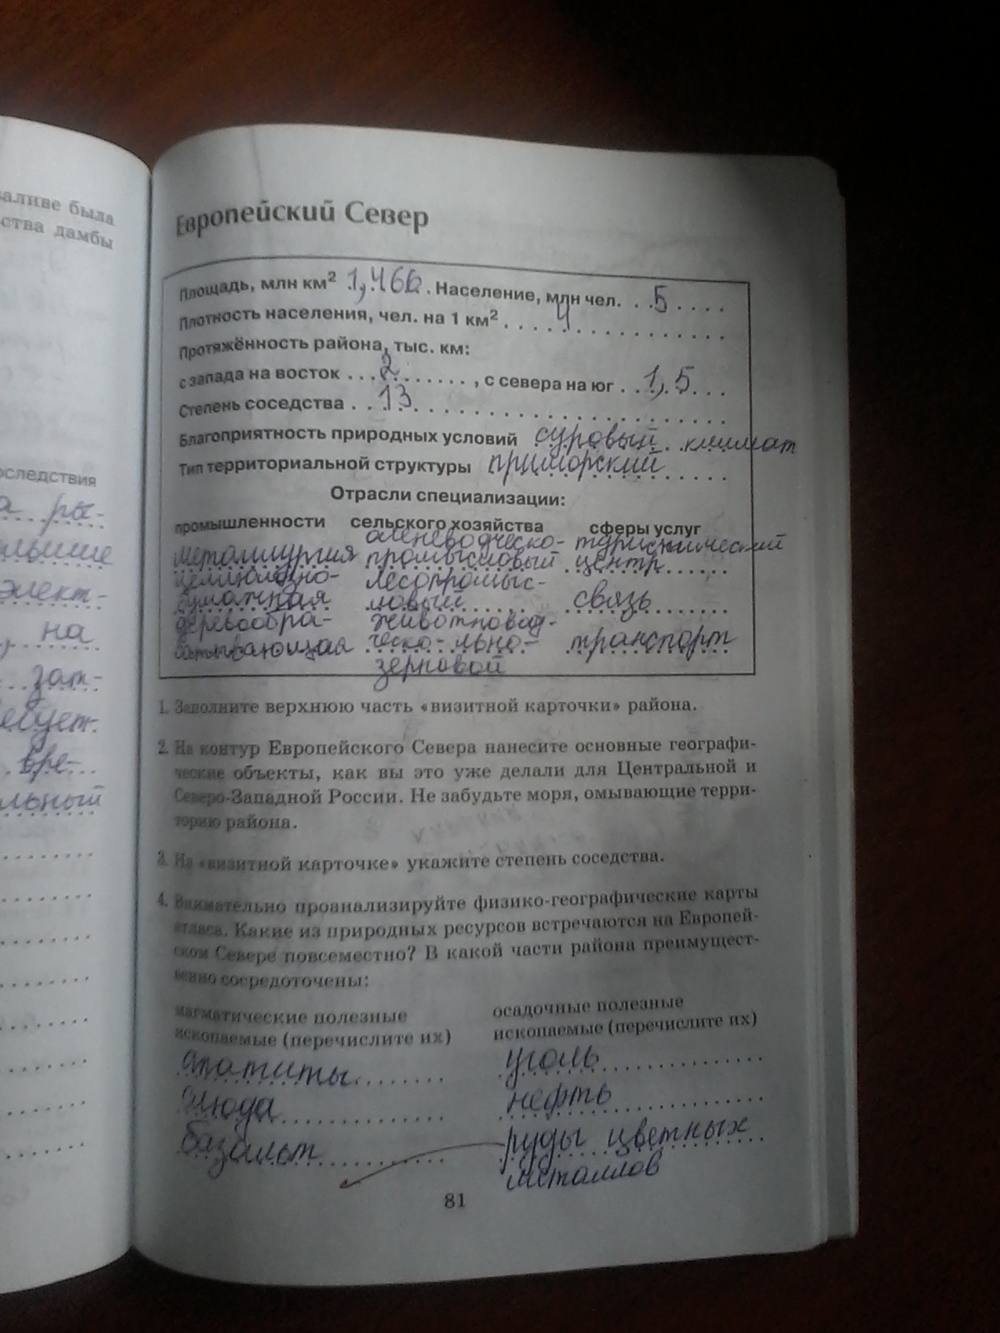 заливе была
ства дамбы
оследствия
а ры-
на
зат-
вре-
льный
Европейский Север
Площадь, млн км² 1,466. Население, млн чел. . . 5 . . . .
Плотность населения, чел. на 1 км² . . . . 4 . . . . . . . . . . .
Протяжённость района, тыс. км:
с запада на восток . . . 2 . . . . . . . , с севера на юг . . 1,5 . . .
Степень соседства . . 13 . . . . . . . . . . . . . . . . . . . .
Благоприятность природных условий суровый климат
Тип территориальной структуры приморский
Отрасли специализации:
промышленности сельского хозяйства сферы услуг
металлургия оленеводческо- туристический
целлюлозно- промысловый центр
бумажная лесопромыс- связь
деревообра- ловый
батывающая животновод- транспорт
ческо-льно-
зерновой
1. Заполните верхнюю часть «визитной карточки» района.
2. На контур Европейского Севера нанесите основные географи-
ческие объекты, как вы это уже делали для Центральной и
Северо-Западной России. Не забудьте моря, омывающие терри-
торию района.
3. На «визитной карточке» укажите степень соседства.
4. Внимательно проанализируйте физико-географические карты
атласа. Какие из природных ресурсов встречаются на Европей-
ском Севере повсеместно? В какой части района преимущест-
венно сосредоточены:
магматические полезные
ископаемые (перечислите их)
апатиты
слюда
базальт
осадочные полезные
ископаемые (перечислите их)
уголь
нефть
руды цветных
металлов
81